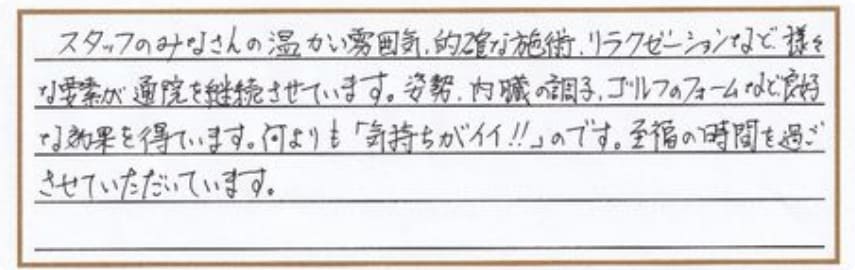 スタッフのみなさんの温かい雰囲気、的確な施術、リラクゼーションなど、様々
な要素が通院を継続させています。姿勢、内臓の調子、ゴルフのフォームなど良好
な効果を得ています。何よりも「気持ちがイイ!!」のです。至福の時間を過ご
させていただいています。